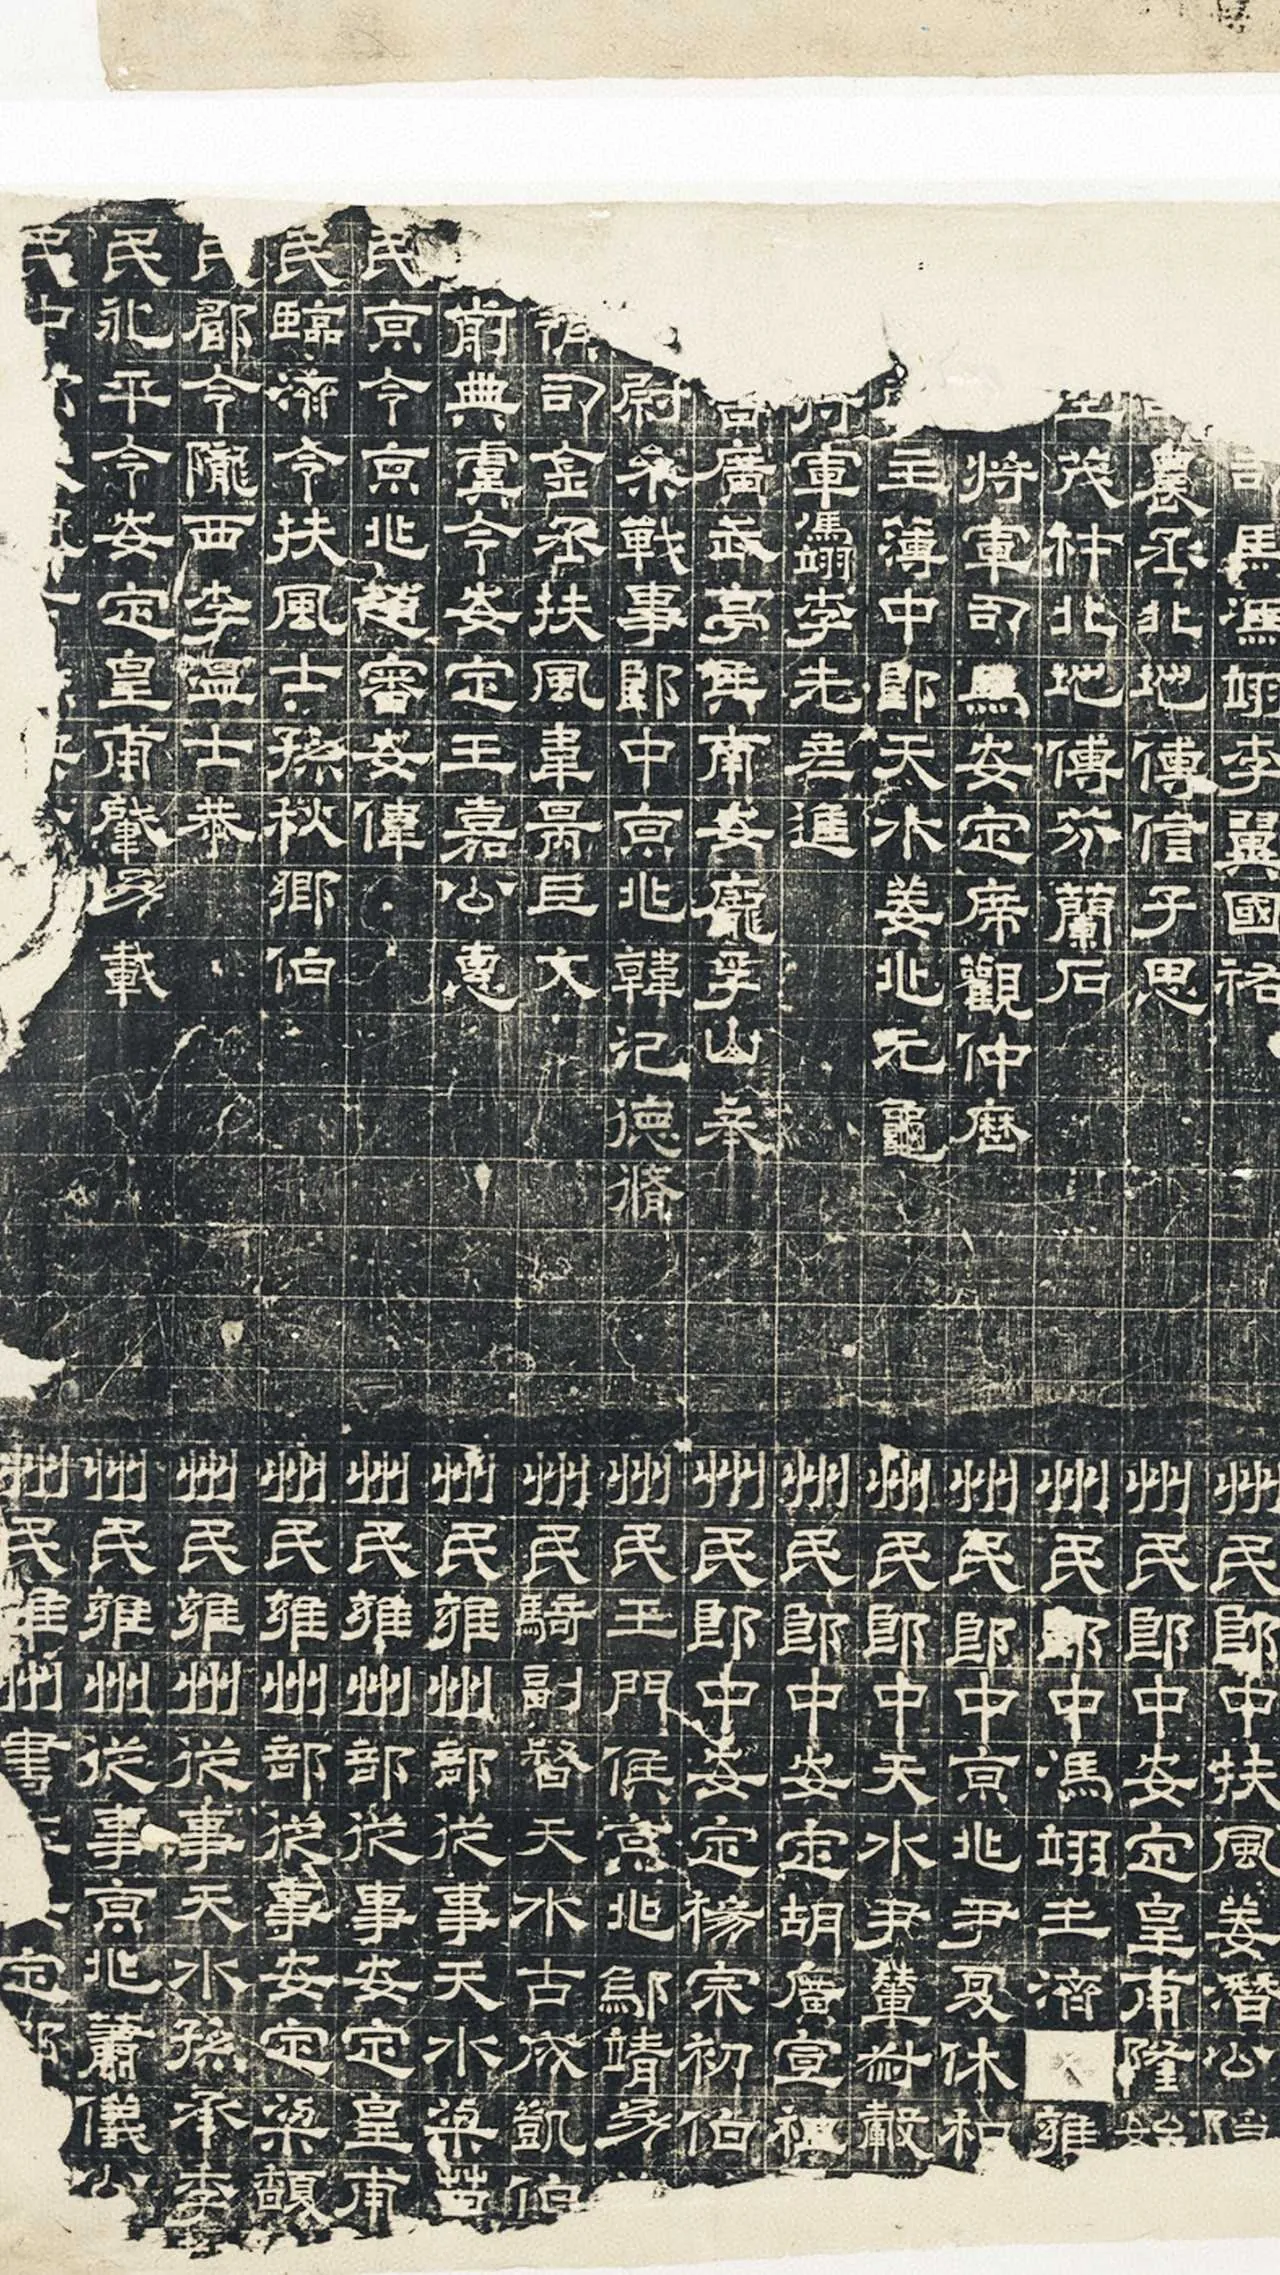 馬馮翊李翼國祐
農丞北地傅信子思
茂才北地傅芬蘭石
將軍司馬安定席觀仲歷
主簿中郎天水姜兆元龜
軍馮翊李先彥進
廣武亭侯南安龐孚山奉
尉參戰事郎中京兆韓氾德脩
司金丞扶風韋昺巨文
前典虞令安定王嘉公惠
民京令京兆趙審安偉
民臨濟令扶風士孫秋鄉伯
民鄠令隴西李溫士恭
民永平令安定皇甫肇幼載
民中
州民郎中扶風姜潛公
州民郎中安定皇甫隆始
州民郎中馮翊王濟 雍
州民郎中京兆尹夏休和
州民郎中天水尹輦叔轂
州民郎中安定胡廣宣祖
州民郎中安定楊宗初伯
州民玉門侯京兆鄔靖幼
州民騎副督天水古成凱伯
州民雍州部從事天水梁苗
州民雍州部從事安定皇甫
州民雍州部從事安定梁馥
州民雍州從事天水孫承季
州民雍州從事京兆蕭儀公
州民雍州書 定